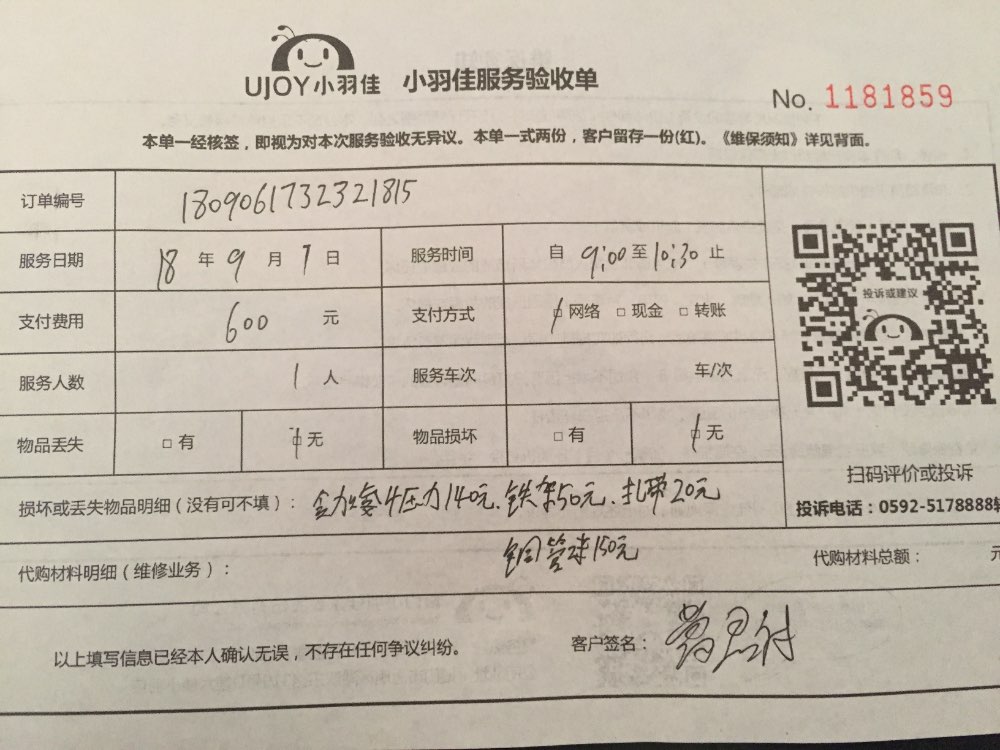 UJOY小羽佳 小羽佳服务验收单
No. 1181859
本单一经核签，即视为对本次服务验收无异议。本单一式两份，客户留存一份(红)。《维保须知》详见背面。
订单编号 1809061732321815
服务日期 18 年 9 月 7 日 服务时间 自 9:00 至 10:30 止
投诉或建议
支付费用 600 元 支付方式 □ 网络 □ 现金 □ 转账
服务人数 1 人 服务车次 车/次
物品丢失 □ 有 □ 无 物品损坏 □ 有 □ 无
扫码评价或投诉
投诉电话：0592-5178888转
损坏或丢失物品明细（没有可不填）： 4压力140元、铁架50元、扎带20元
铜管 150元
代购材料明细（维修业务）： 代购材料总额： 元
以上填写信息已经本人确认无误，不存在任何争议纠纷。 客户签名：